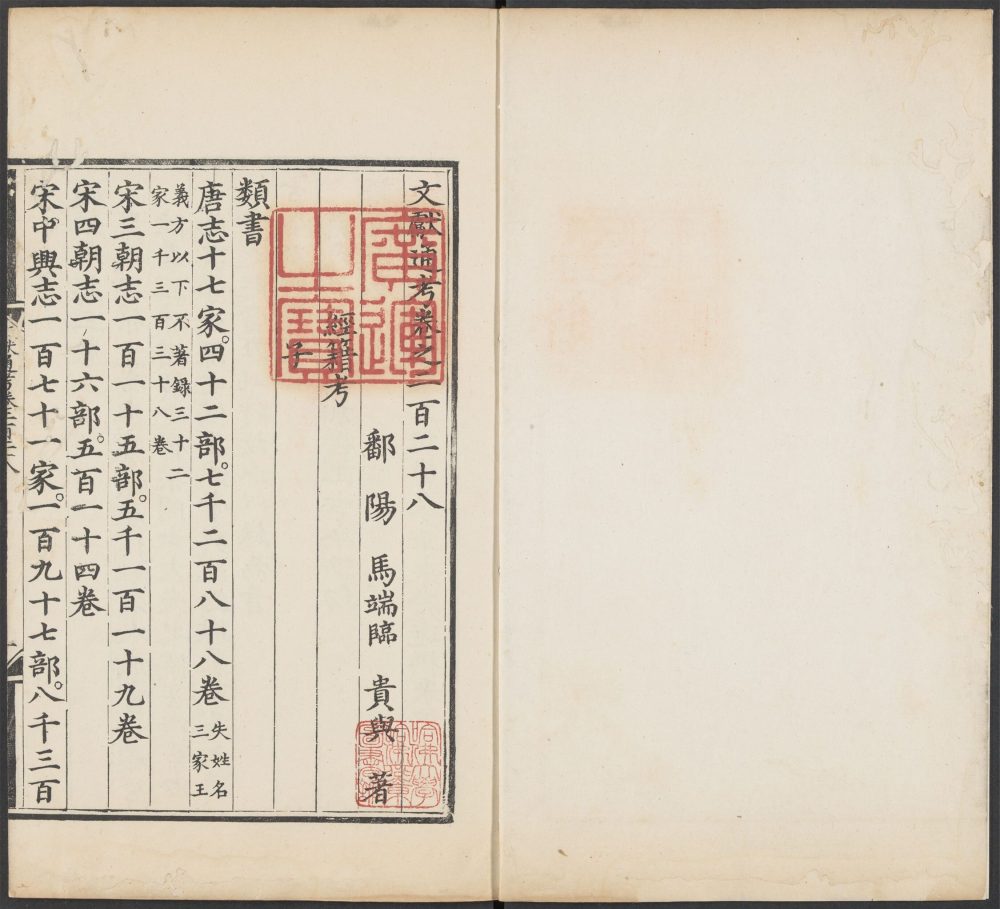 文獻通考卷之二百二十八
鄱陽 馬端臨 貴與 著
經籍考
子
類書
唐志十七家。四十二部。七千二百八十八卷
失姓名
三家王
義方以下不著錄三十二
家一千三百三十八卷
宋三朝志一百一十五部。五千一百一十九卷
宋四朝志一十六部。五百一十四卷
宋中興志一百七十一家。一百九十七部。八千三百
廣運
之寶